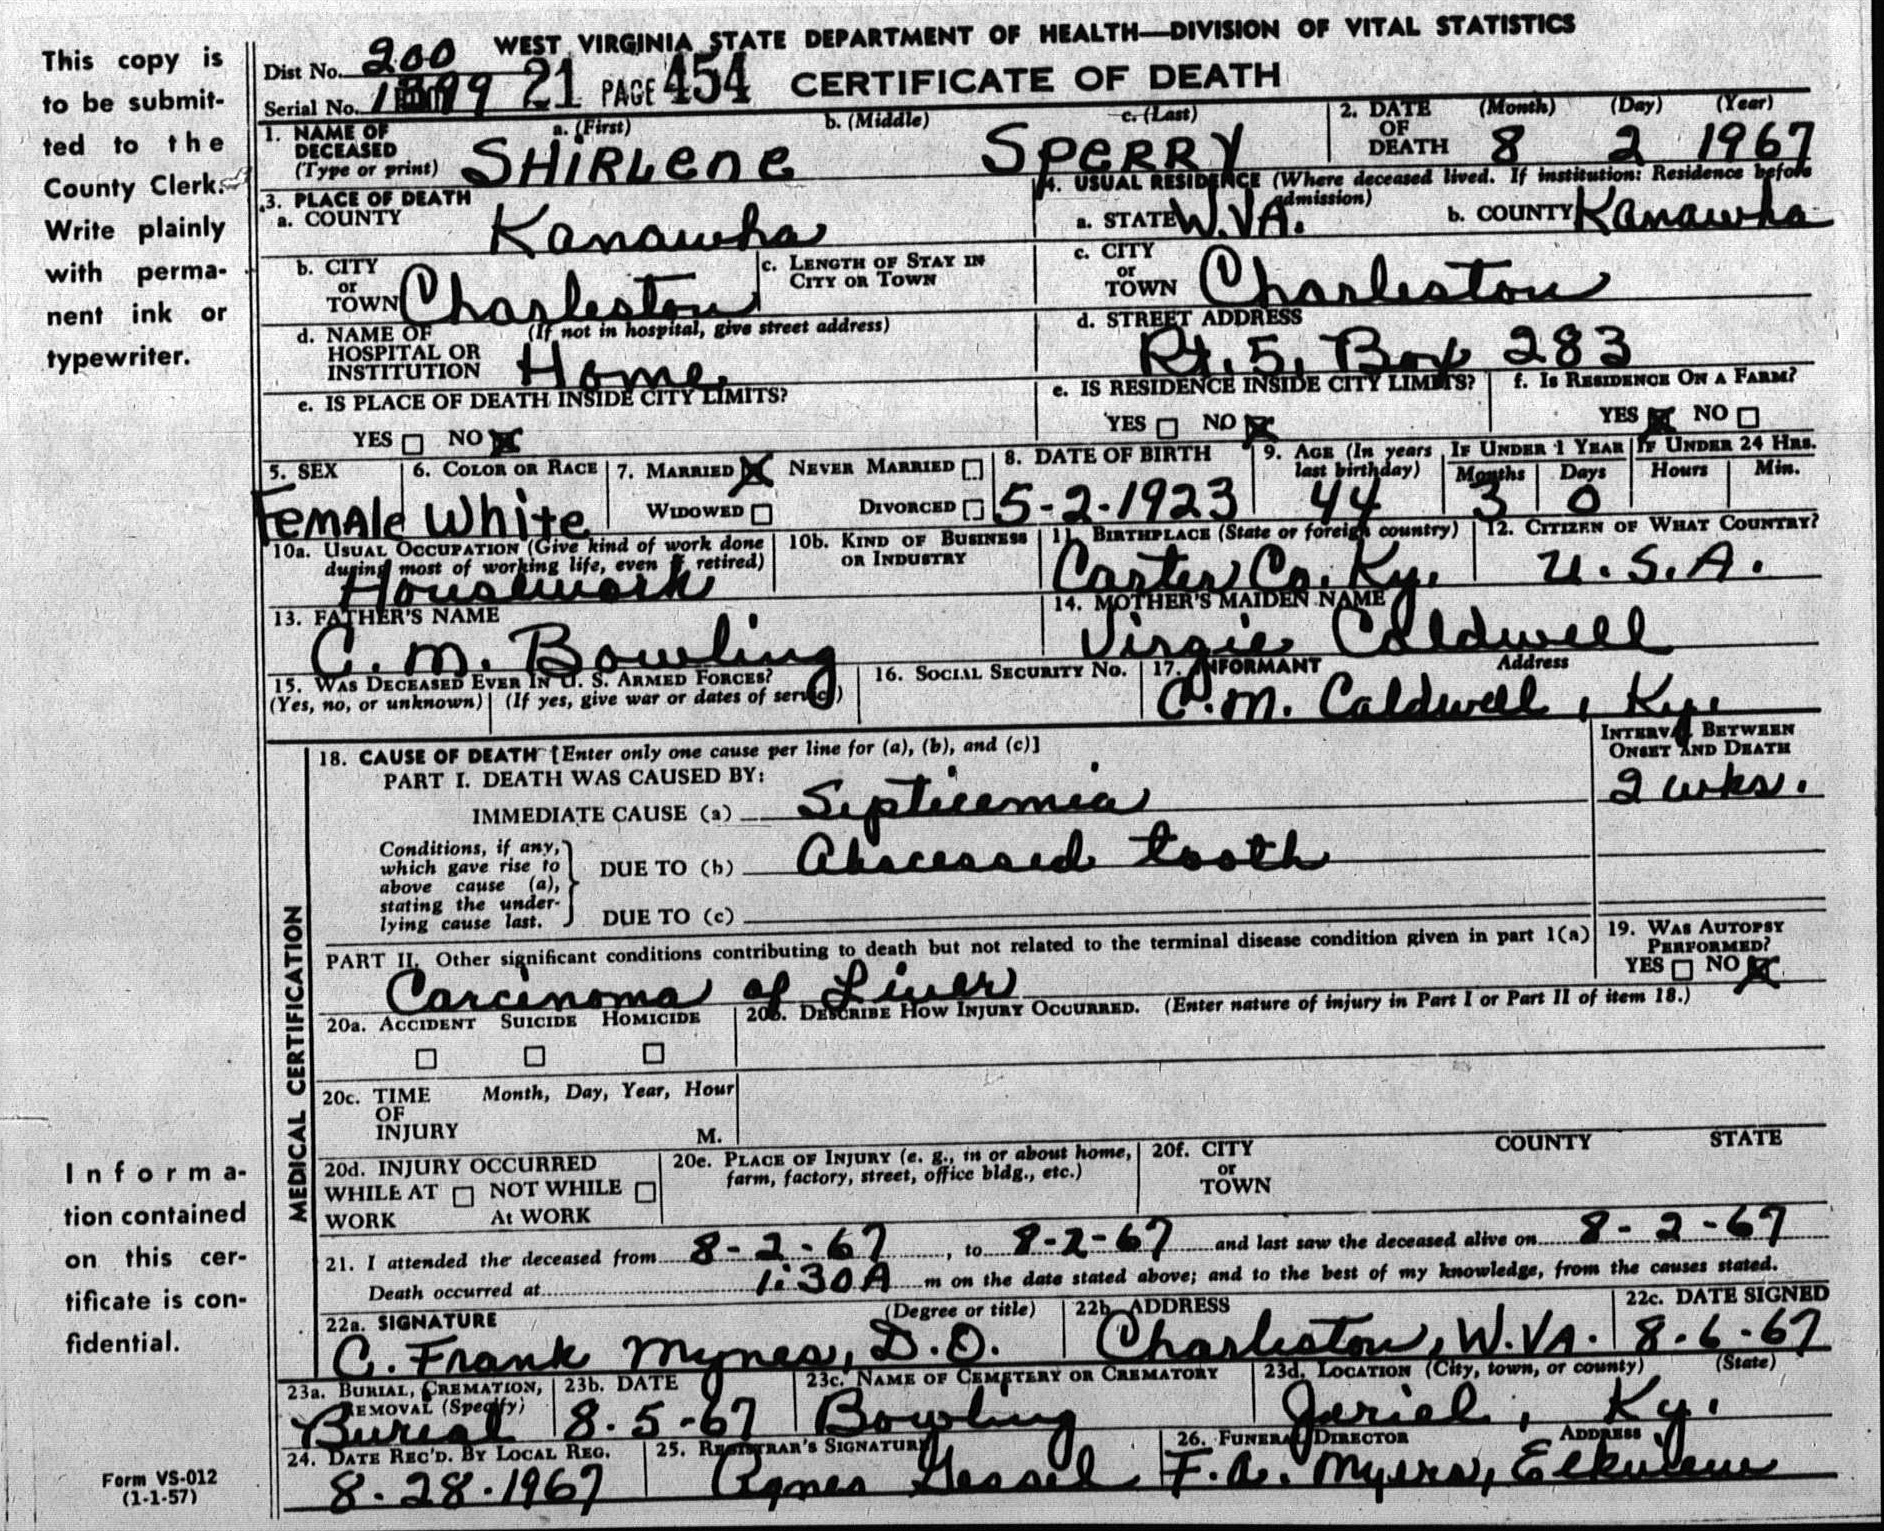 This copy is
to be submit-
ted to the
County Clerk.
Write plainly
with perma-
nent ink or
typewriter.
WEST VIRGINIA STATE DEPARTMENT OF HEALTH—DIVISION OF VITAL STATISTICS
Dist No. 200
Serial No. 21 PAGE 454 CERTIFICATE OF DEATH
1. NAME OF DECEASED (Type or print) a. (First) b. (Middle) c. (Last)
SHIRLENE SPERRY
2. DATE OF DEATH (Month) (Day) (Year)
8 2 1967
3. PLACE OF DEATH
a. COUNTY Kanawha
4. USUAL RESIDENCE (Where deceased lived. If institution: Residence before admission)
a. STATE W.VA. b. COUNTY Kanawha
b. CITY or TOWN Charleston
c. LENGTH OF STAY IN CITY OR TOWN
c. CITY or TOWN Charleston
d. NAME OF HOSPITAL OR INSTITUTION (If not in hospital, give street address)
Home
d. STREET ADDRESS
Rt. 5, Box 283
e. IS PLACE OF DEATH INSIDE CITY LIMITS?
YES NO
e. IS RESIDENCE INSIDE CITY LIMITS?
YES NO
f. IS RESIDENCE ON A FARM?
YES NO
5. SEX
Female
6. COLOR OR RACE
White
7. MARRIED NEVER MARRIED
WIDOWED DIVORCED
8. DATE OF BIRTH
5-2-1923
9. AGE (In years last birthday)
44
IF UNDER 1 YEAR
Months Days
3 0
IF UNDER 24 HRS.
Hours Min.
10a. USUAL OCCUPATION (Give kind of work done during most of working life, even if retired)
Housework
10b. KIND OF BUSINESS OR INDUSTRY
11. BIRTHPLACE (State or foreign country)
Carter Co. Ky.
12. CITIZEN OF WHAT COUNTRY?
U.S.A.
13. FATHER'S NAME
C. M. Bowling
14. MOTHER'S MAIDEN NAME
Virgie Caldwell
15. WAS DECEASED EVER IN U. S. ARMED FORCES?
(Yes, no, or unknown) (If yes, give war or dates of service)
16. SOCIAL SECURITY NO.
17. INFORMANT Address
C.M. Caldwell, Ky.
MEDICAL CERTIFICATION
18. CAUSE OF DEATH [Enter only one cause per line for (a), (b), and (c)]
INTERVAL BETWEEN ONSET AND DEATH
PART I. DEATH WAS CAUSED BY:
IMMEDIATE CAUSE (a) Septicemia 2 wks.
Conditions, if any, which gave rise to above cause (a), stating the underlying cause last.
DUE TO (b) Abscessed tooth
DUE TO (c)
PART II. Other significant conditions contributing to death but not related to the terminal disease condition given in part 1(a)
Carcinoma of Liver
19. WAS AUTOPSY PERFORMED?
YES NO
20a. ACCIDENT SUICIDE HOMICIDE
20b. DESCRIBE HOW INJURY OCCURRED. (Enter nature of injury in Part I or Part II of item 18.)
20c. TIME OF INJURY Month, Day, Year, Hour
M.
20d. INJURY OCCURRED
WHILE AT WORK NOT WHILE At WORK
20e. PLACE OF INJURY (e. g., in or about home, farm, factory, street, office bldg., etc.)
20f. CITY or TOWN COUNTY STATE
21. I attended the deceased from 8-2-67, to 8-2-67 and last saw the deceased alive on 8-2-67
Death occurred at 1:30A m on the date stated above; and to the best of my knowledge, from the causes stated.
22a. SIGNATURE (Degree or title)
C. Frank Mynes, D.O.
22b. ADDRESS
Charleston, W.VA.
22c. DATE SIGNED
8-6-67
23a. BURIAL, CREMATION, REMOVAL (Specify)
Burial
23b. DATE
8-5-67
23c. NAME OF CEMETERY OR CREMATORY
Bowling
23d. LOCATION (City, town, or county) (State)
Jeriel, Ky.
24. DATE REC'D. BY LOCAL REG.
8-28-1967
25. REGISTRAR'S SIGNATURE
Agnes
26. FUNERAL DIRECTOR ADDRESS
F. A. Myers, Elkview
Informa-
tion contained
on this cer-
tificate is con-
fidential.
Form VS-012
(1-1-57)